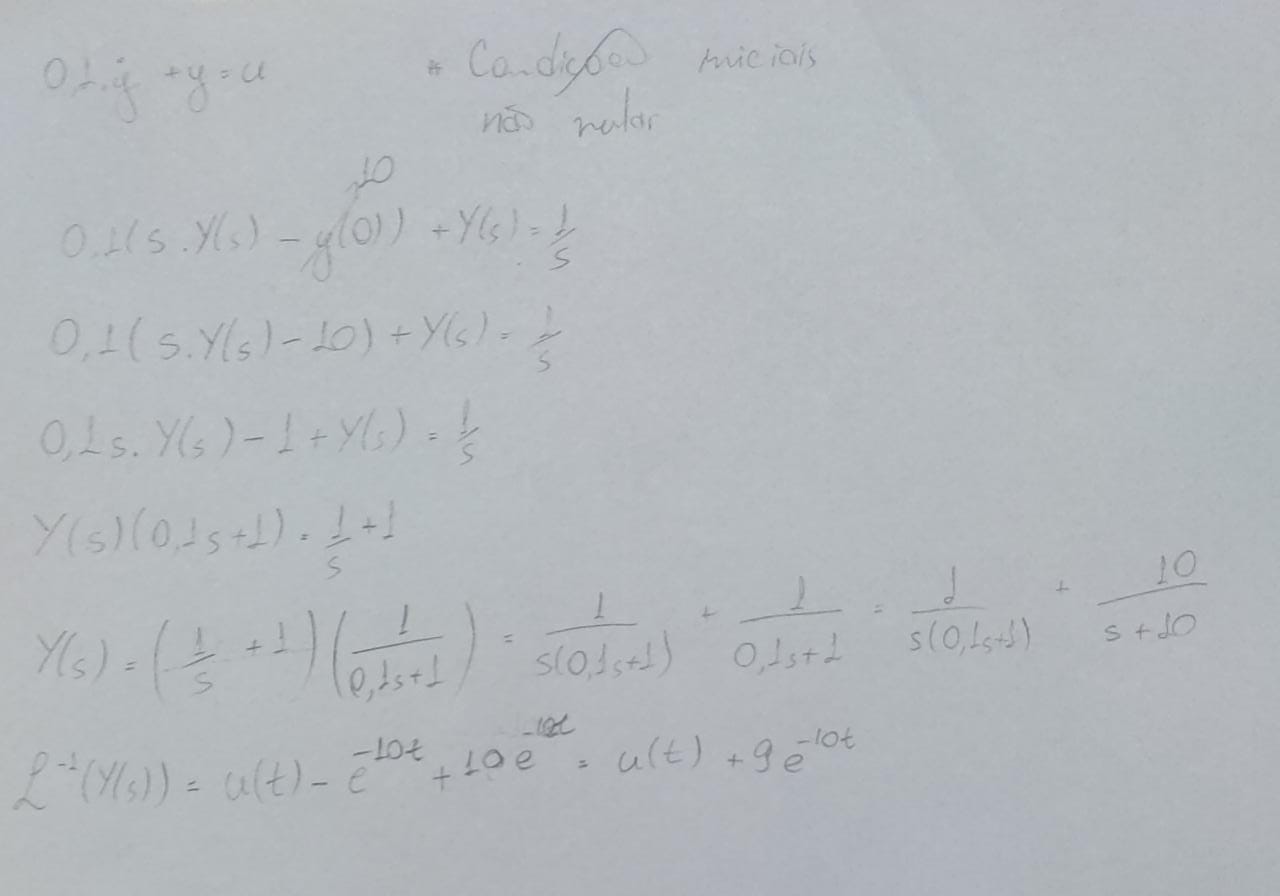 0,1.ẏ + y = u * Condições iniciais
não nulas
10
0,1(s.Y(s) - y(0)) + Y(s) = 1/s
0,1(s.Y(s) - 10) + Y(s) = 1/s
0,1s.Y(s) - 1 + Y(s) = 1/s
Y(s)(0,1s+1) = 1/s + 1
Y(s) = (1/s + 1)(1/(0,1s+1)) = 1/(s(0,1s+1)) + 1/(0,1s+1) = 1/(s(0,1s+1)) + 10/(s+10)
ℒ⁻¹(Y(s)) = u(t) - e^(-10t) + 10e^(-10t) = u(t) + 9e^(-10t)